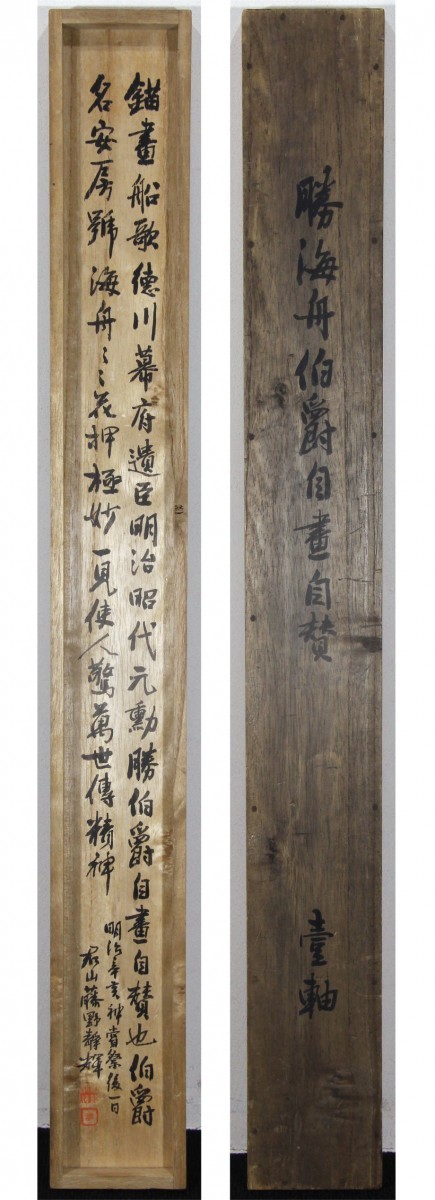 錨畫船歌德川幕府遺臣明治昭代元勳勝伯爵自畫自贊也伯爵
名安房號海舟〻〻花押極妙一見使人驚萬世傳精神
明治辛亥神嘗祭後一日
君山藤野靜輝
勝海舟伯爵自畫自賛
壹軸